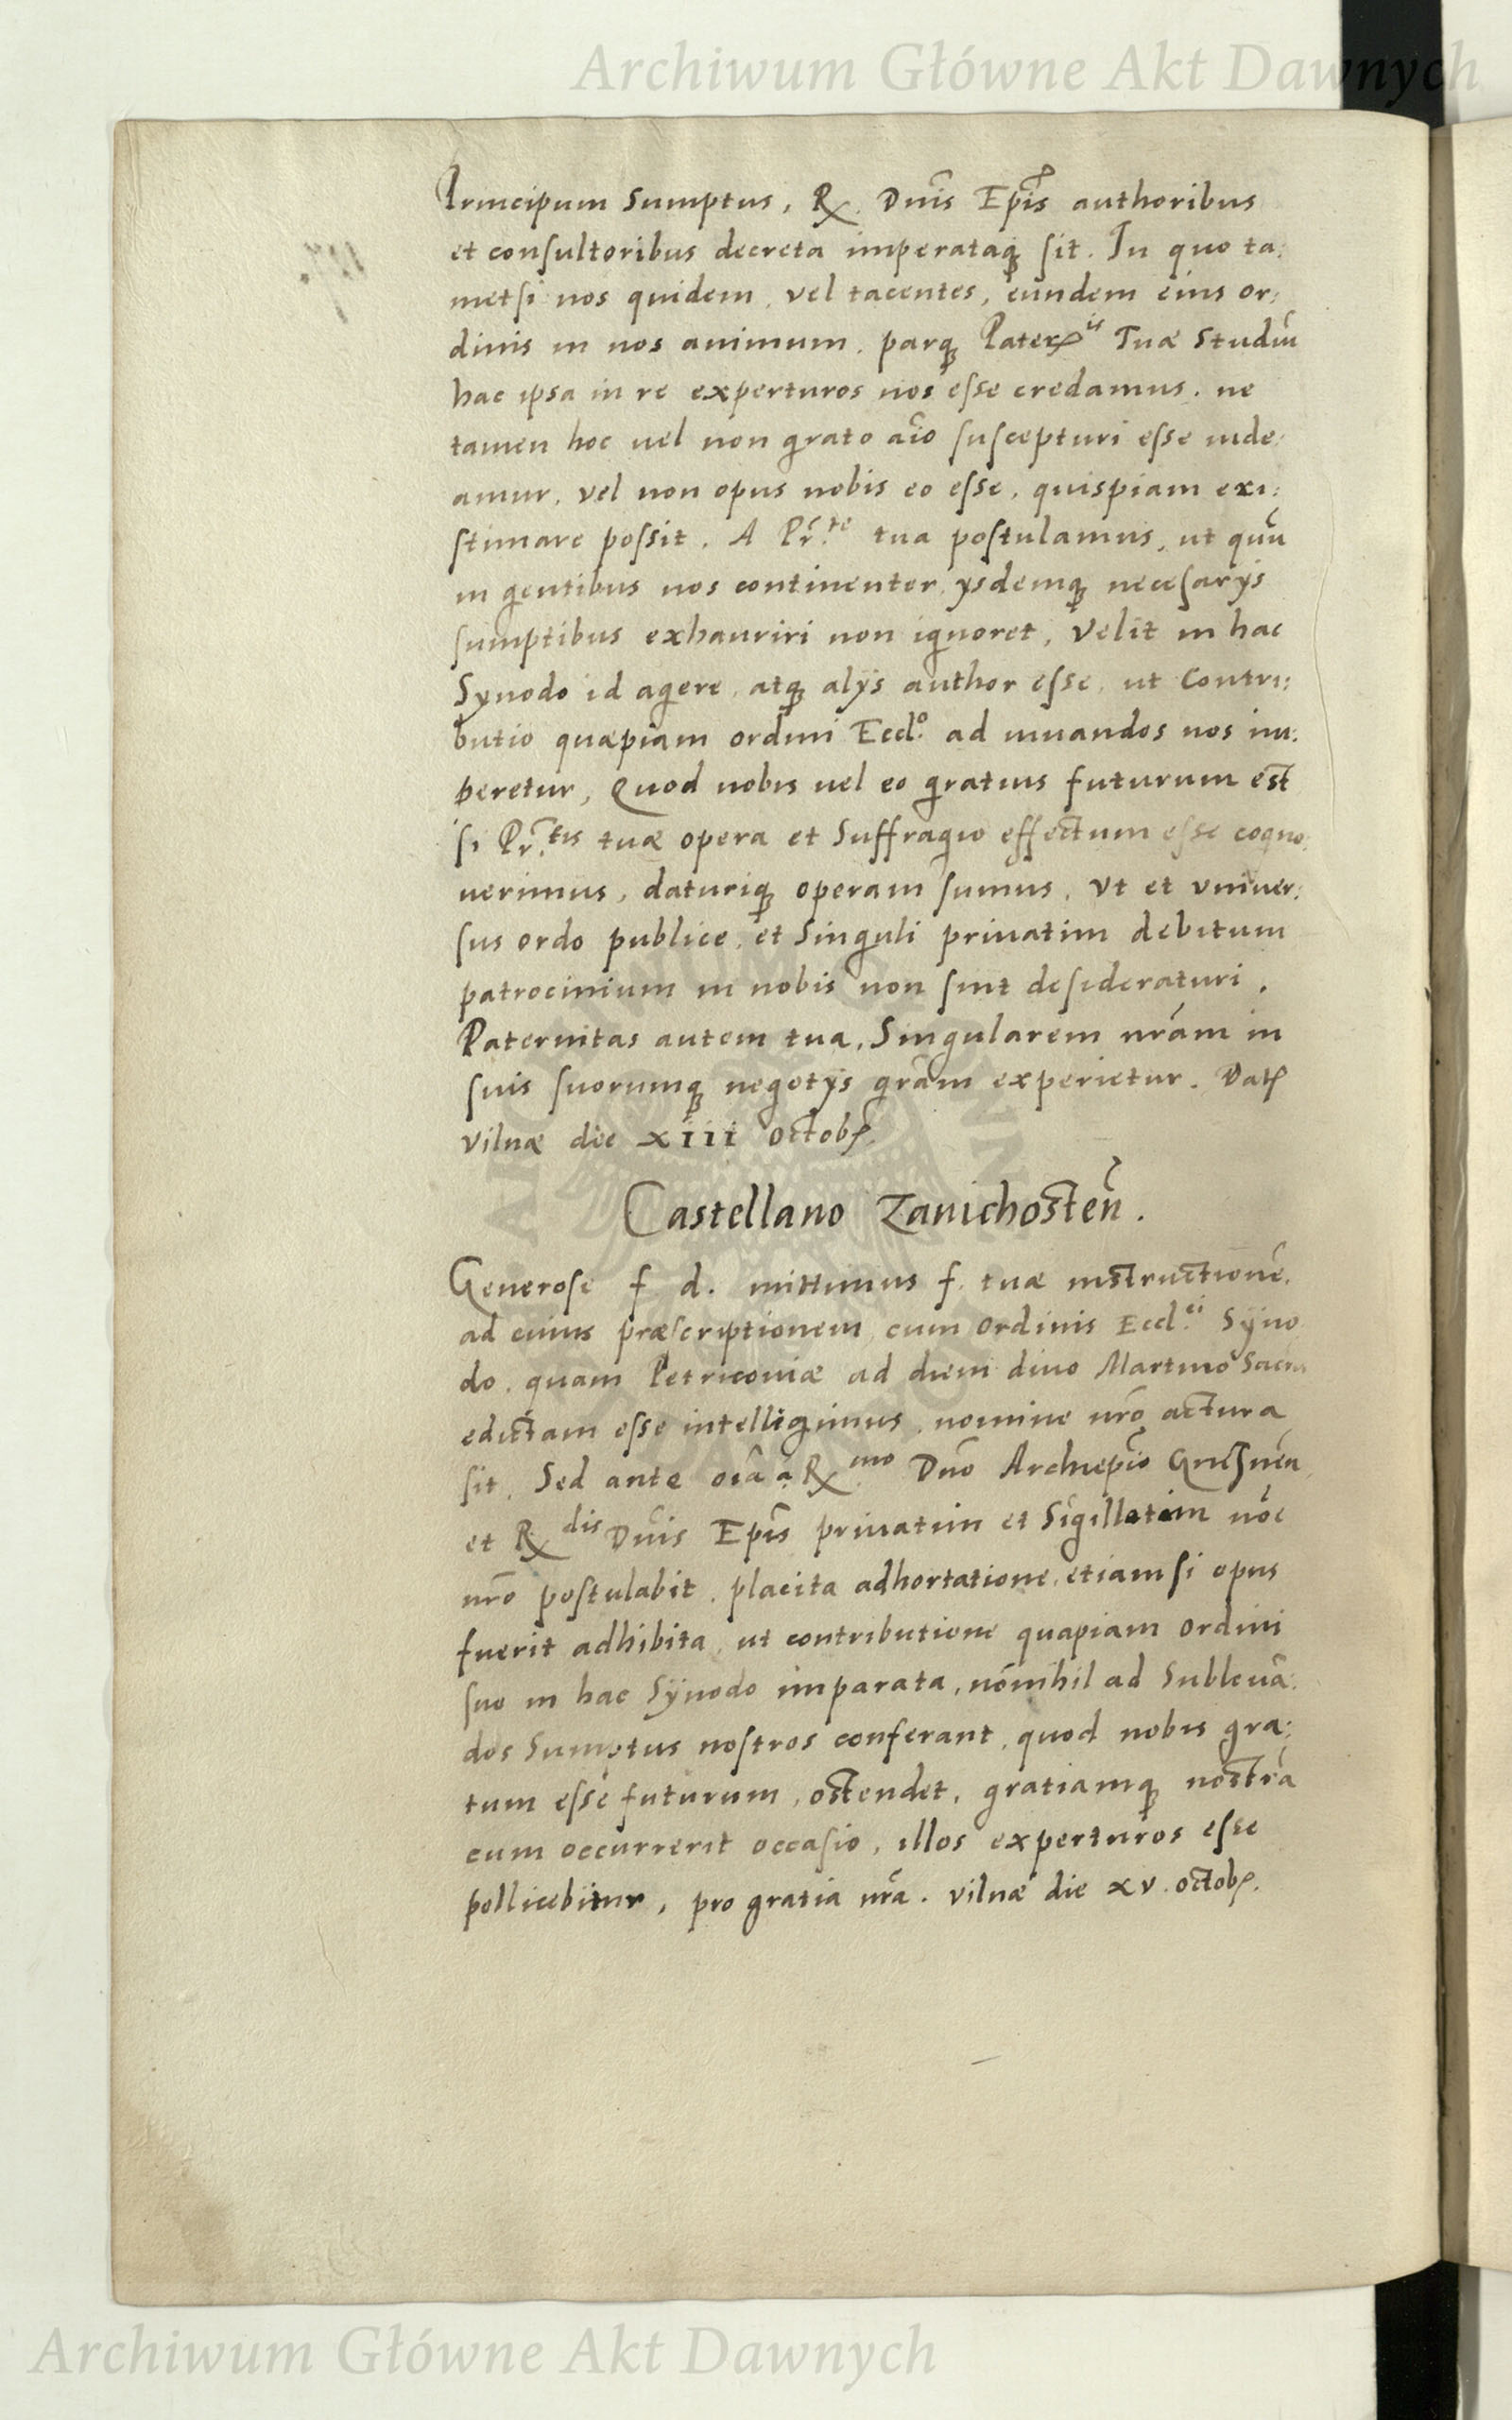 Archiwum Główne Akt Dawnych
Principum Sumptus, R. Dnis Epis authoribus
et consultoribus decreta imperataq sit. In quo ta:
metsi nos quidem, vel tacentes, eundem eius or:
dinis in nos animum, parq Pater.is Tuæ Studiũ
hac ipsa in re experturos nos esse credamus. ne
tamen hoc uel non grato aĩo suscepturi esse uide:
amur, vel non opus nobis eo esse, quispiam exi:
stimare possit. A Pr.te tua postulamus, ut quũ
ingentibus nos continenter ysdemq necesarys
sumptibus exhauriri non ignoret, Velit in hac
Synodo id agere, atq alys author esse, ut Contri:
butio quæpiam ordini Eccl.o ad iuuandos nos im:
peretur, Quod nobis uel eo gratius futurum est
si Pr.tis tuæ opera et Suffragio effectum esse cogno:
uerimus, daturiq operam sumus, Vt et vniuer:
sus ordo publice, et Singuli priuatim debitum
patrocinium in nobis non sint desideraturi.
Paternitas autem tua, Singularem nrãm in
suis suorumq negotys grãm experietur. Dat
Vilnæ die xiii Octob.
Castellano Zanichosteñ.
Generose f. d. mittimus f. tuæ instructionẽ,
ad cuius præscriptionem, cum Ordinis Eccl.ci Syno
do, quam Petricouiæ ad diem diuo Martino Sacrũ
edictam esse intelligimus, nomine nrõ actura
sit. Sed ante oĩa a R.mo Dnõ Archiepĩo Gnesneñ
et R.dis Dnis Epis priuatim et Sigillatim noẽ
nrõ postulabit, placita adhortatione, etiamsi opus
fuerit adhibita, ut contributione quapiam Ordini
suo in hac Synodo imparata, nõnihil ad Subleuã:
dos Sumptus nostros conferant, quod nobis gra:
tum esse futurum, ostendet, gratiamq nostrã
cum occurrerit occasio, illos experturos esse
pollicebitur, pro gratia nrã. Vilnæ die xv. octob.
Archiwum Główne Akt Dawnych